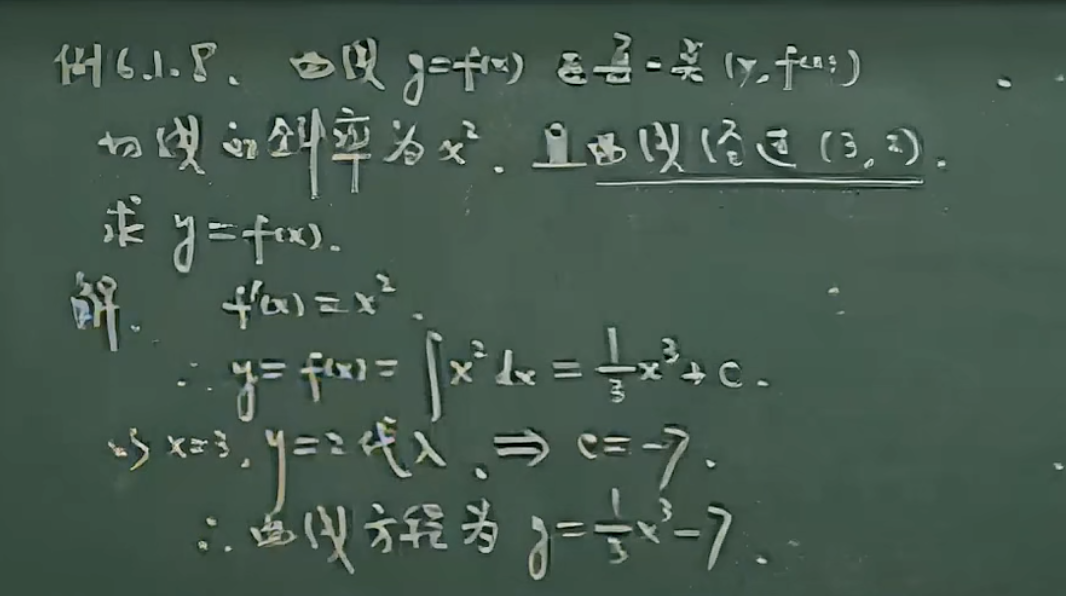 例6.1.8. 曲线 y=f(x) 在任一点 (x, f(x))
切线的斜率为 x². 且曲线经过 (3, 2).
求 y=f(x).
解. f'(x)=x².
∴ y=f(x)=∫x²dx=1/3x³+c.
以 x=3, y=2 代入. ⇒ c=-7.
∴ 曲线方程为 y=1/3x³-7.